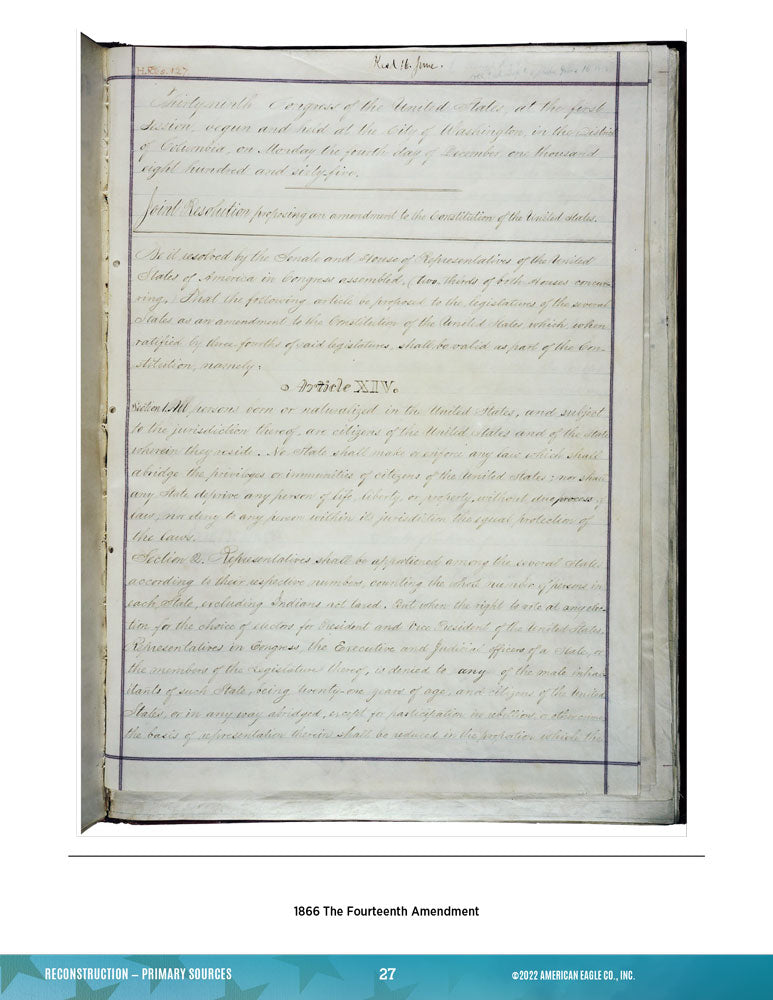 H.Res.127
Rec'd 16 June.
Thirty-ninth Congress of the United States, at the first
Session, begun and held at the City of Washington, in the District
of Columbia, on Monday the fourth day of December one thousand
eight hundred and sixty-five.
Joint Resolution proposing an amendment to the Constitution of the United States.
Be it resolved by the Senate and House of Representatives of the United
States of America in Congress assembled, (two thirds of both Houses concur-
ring,) That the following article be proposed to the legislatures of the several
States as an amendment to the Constitution of the United States, which, when
ratified by three-fourths of said legislatures, shall be valid as part of the Con-
stitution, namely:
Article XIV.
Section 1. All persons born or naturalized in the United States, and subject
to the jurisdiction thereof, are citizens of the United States and of the State
wherein they reside. No State shall make or enforce any law which shall
abridge the privileges or immunities of citizens of the United States; nor shall
any State deprive any person of life, liberty, or property, without due process of
law; nor deny to any person within its jurisdiction the equal protection of
the laws.
Section 2. Representatives shall be apportioned among the several States
according to their respective numbers, counting the whole number of persons in
each State, excluding Indians not taxed. But when the right to vote at any elec-
tion for the choice of electors for President and Vice President of the United States,
Representatives in Congress, the Executive and Judicial officers of a State, or
the members of the Legislature thereof, is denied to any of the male inhab-
itants of such State, being twenty-one years of age, and citizens of the United
States, or in any way abridged, except for participation in rebellion, or other crime,
the basis of representation therein shall be reduced in the proportion which the
1866 The Fourteenth Amendment
RECONSTRUCTION – PRIMARY SOURCES
27
©2022 AMERICAN EAGLE CO., INC.